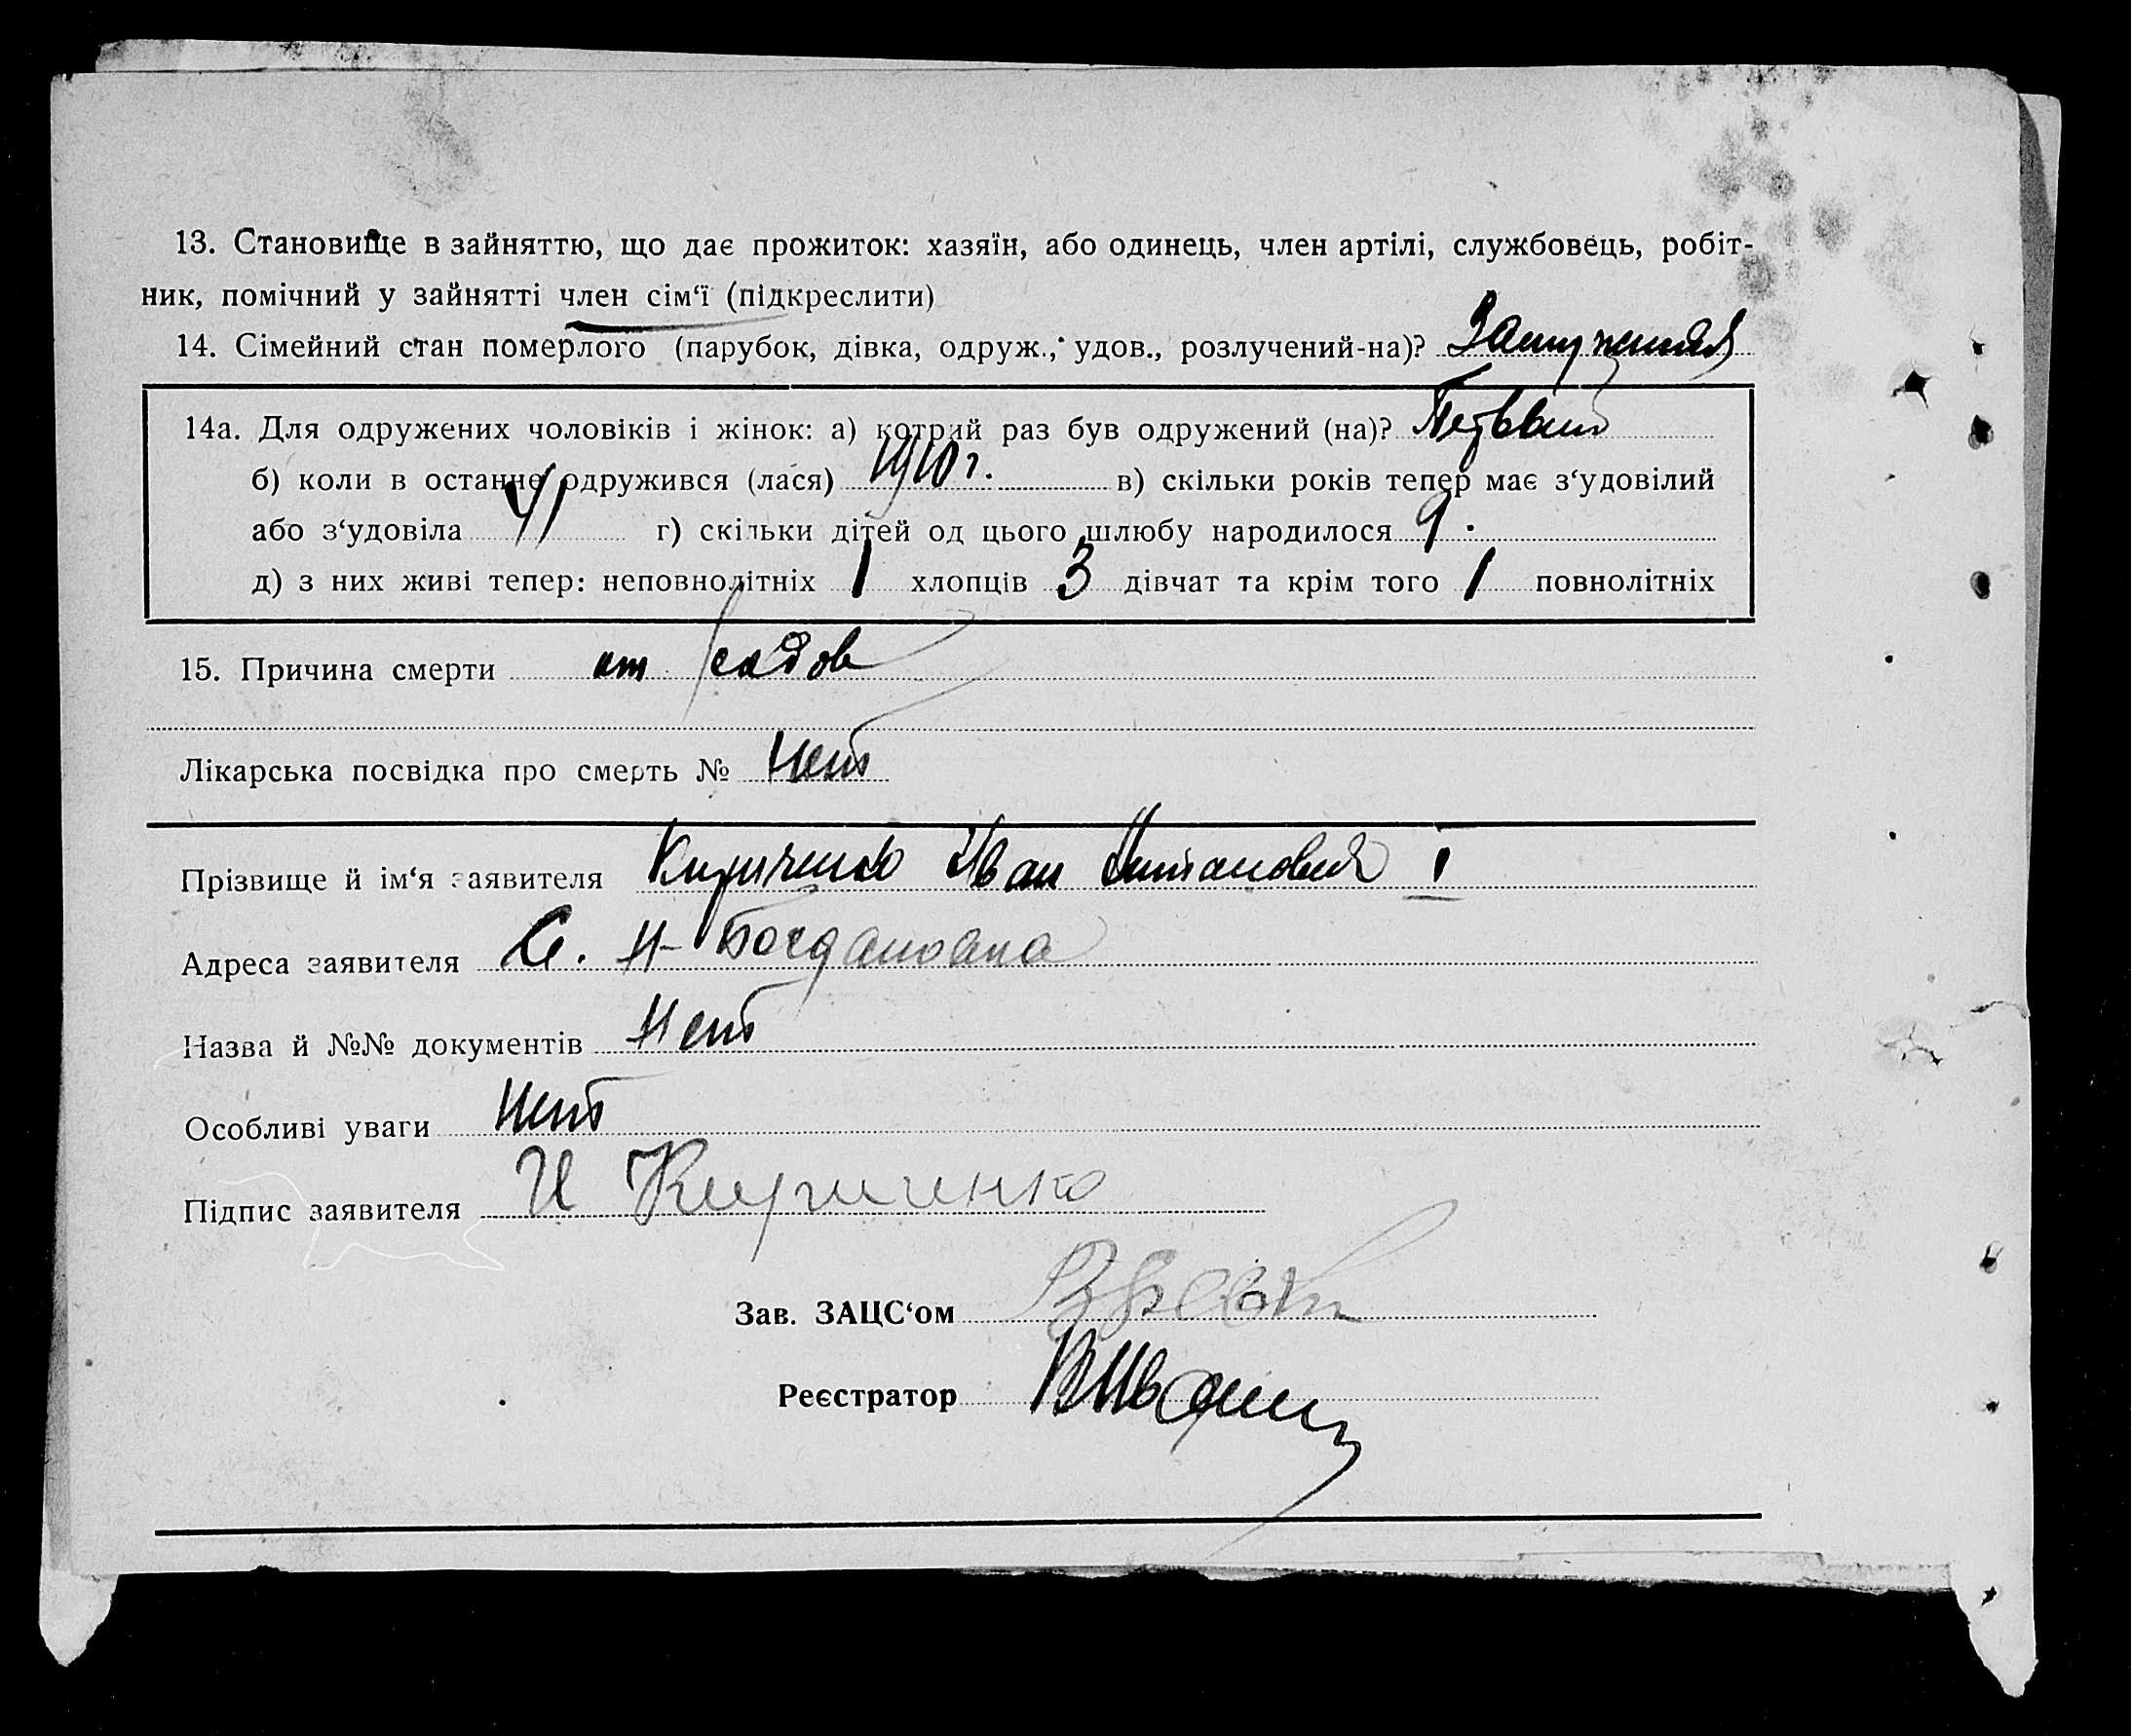 13. Становище в зайняттю, що дає прожиток: хазяїн, або одинець, член артілі, службовець, робіт-
ник, помічний у зайнятті член сім‘ї (підкреслити)
14. Сімейний стан померлого (парубок, дівка, одруж., удов., розлучений-на)? Замужняя
14а. Для одружених чоловіків і жінок: а) котрий раз був одружений (на)? Первый
б) коли в останнє одружився (лася) 1910 г. в) скільки років тепер має з‘удовілий
або з‘удовіла 41 г) скільки дітей од цього шлюбу народилося 9.
д) з них живі тепер: неповнолітніх 1 хлопців 3 дівчат та крім того 1 повнолітніх
15. Причина смерти от родов
Лікарська посвідка про смерть № Нет
Прізвище й ім‘я заявителя Кириченко Иван I
Адреса заявителя С. Н-Богдановка
Назва й №№ документів Нет
Особливі уваги Нет
Підпис заявителя И Кириченко
Зав. ЗАЦС‘ом
Реєстратор